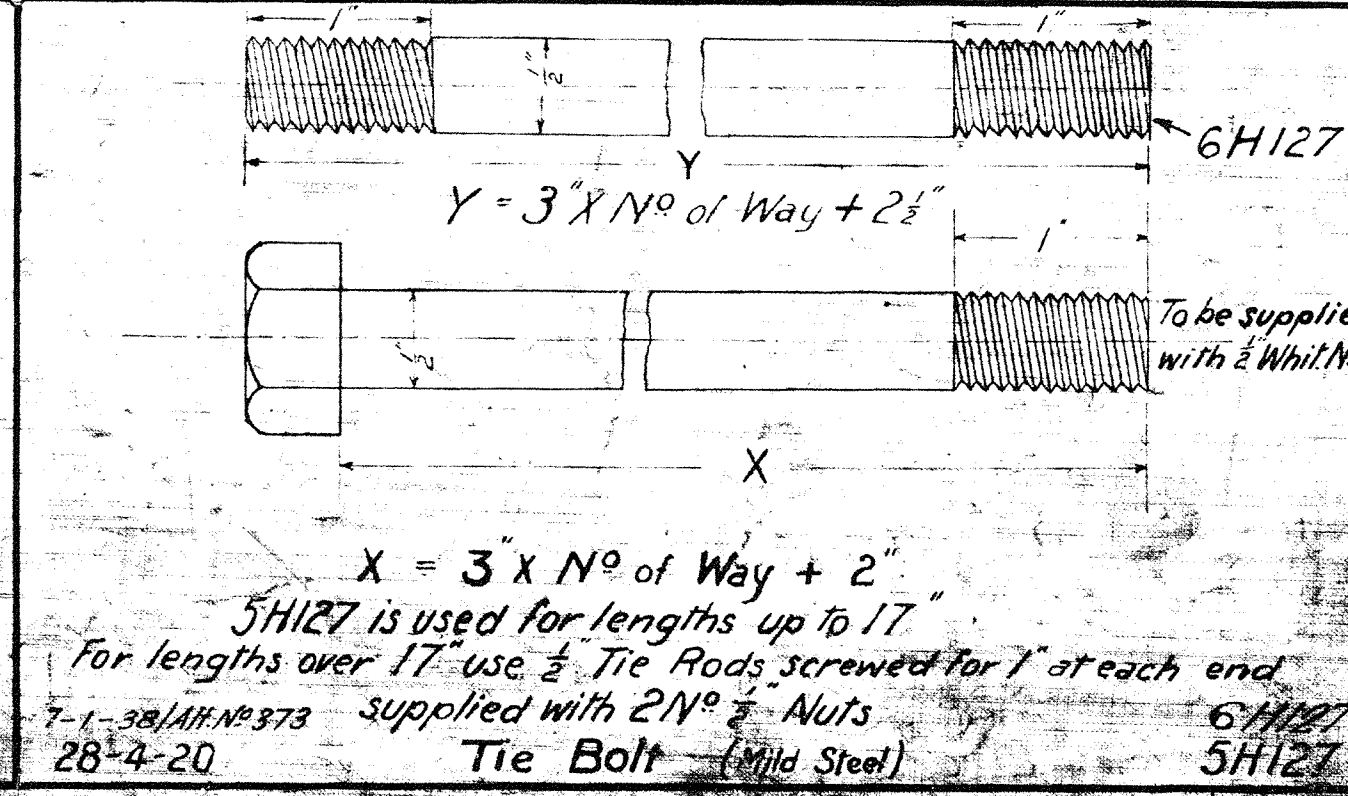 1" 1"
1/2"
6H127
Y
Y = 3" X Nº of Way + 2 1/2"
1"
1/2"
To be supplie
with 1/2" Whit. N
X
X = 3" X Nº of Way + 2"
5H127 is used for lengths up to 17"
For lengths over 17" use 1/2" Tie Rods screwed for 1" at each end
supplied with 2 Nº 1/2" Nuts
7-1-38/Alt. Nº 373 6H127
28-4-20 Tie Bolt (Mild Steel) 5H127